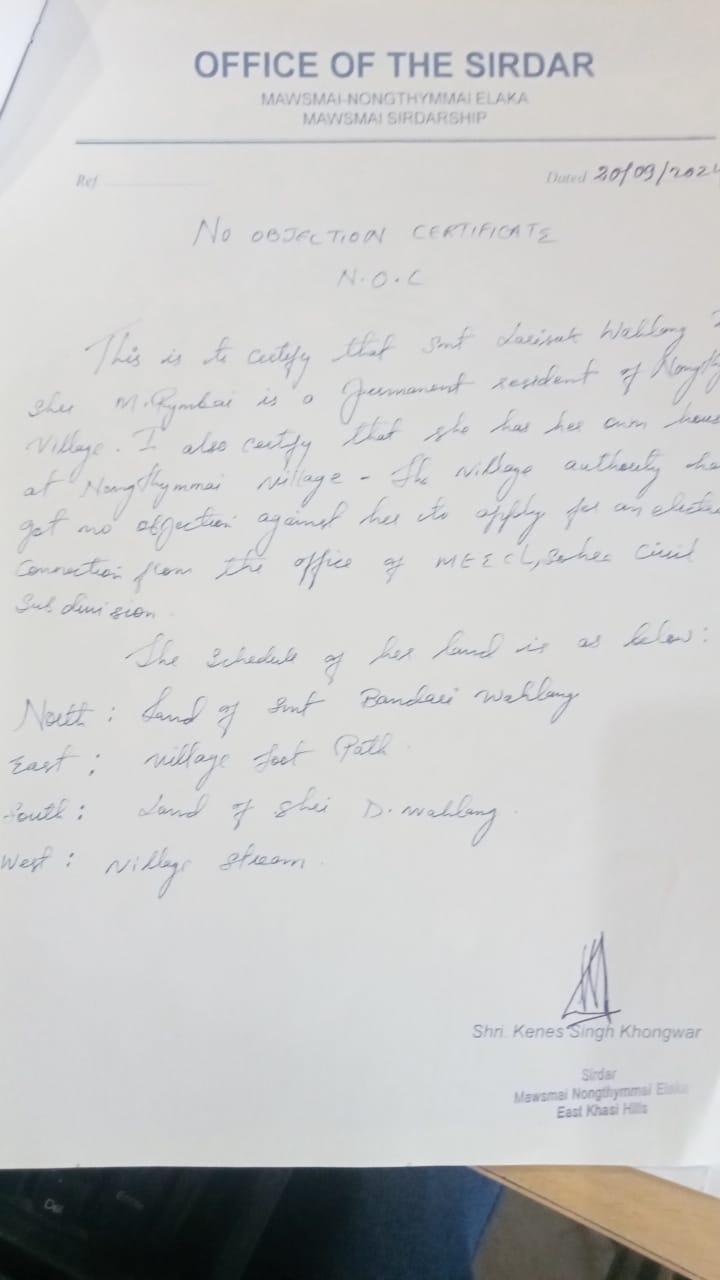 OFFICE OF THE SIRDAR
MAWSMAI-NONGTHYMMAI ELAKA
MAWSMAI SIRDARSHIP
Ref
Dated 20/09/202
NO OBJECTION CERTIFICATE
N.O.C
This is to certify that Smt Wahlang
Shri M. Rymbai is a permanent resident of
Village. I also certify that she has her own
at Nongthymmai village - The village authority
got no objection against her to apply for an
Connection from the office of MEECL, Sohra Civil
Sub division.
The Schedule of her land is as below:
North: Land of Smt Bandari Wahlang
East: Village foot Path.
South: Land of Shri D. Wahlang.
West: Village Stream.
Shri. Kenes Singh Khongwar
Sirdar
Mawsmai Nongthymmai Elaka
East Khasi Hills
Del
Enter